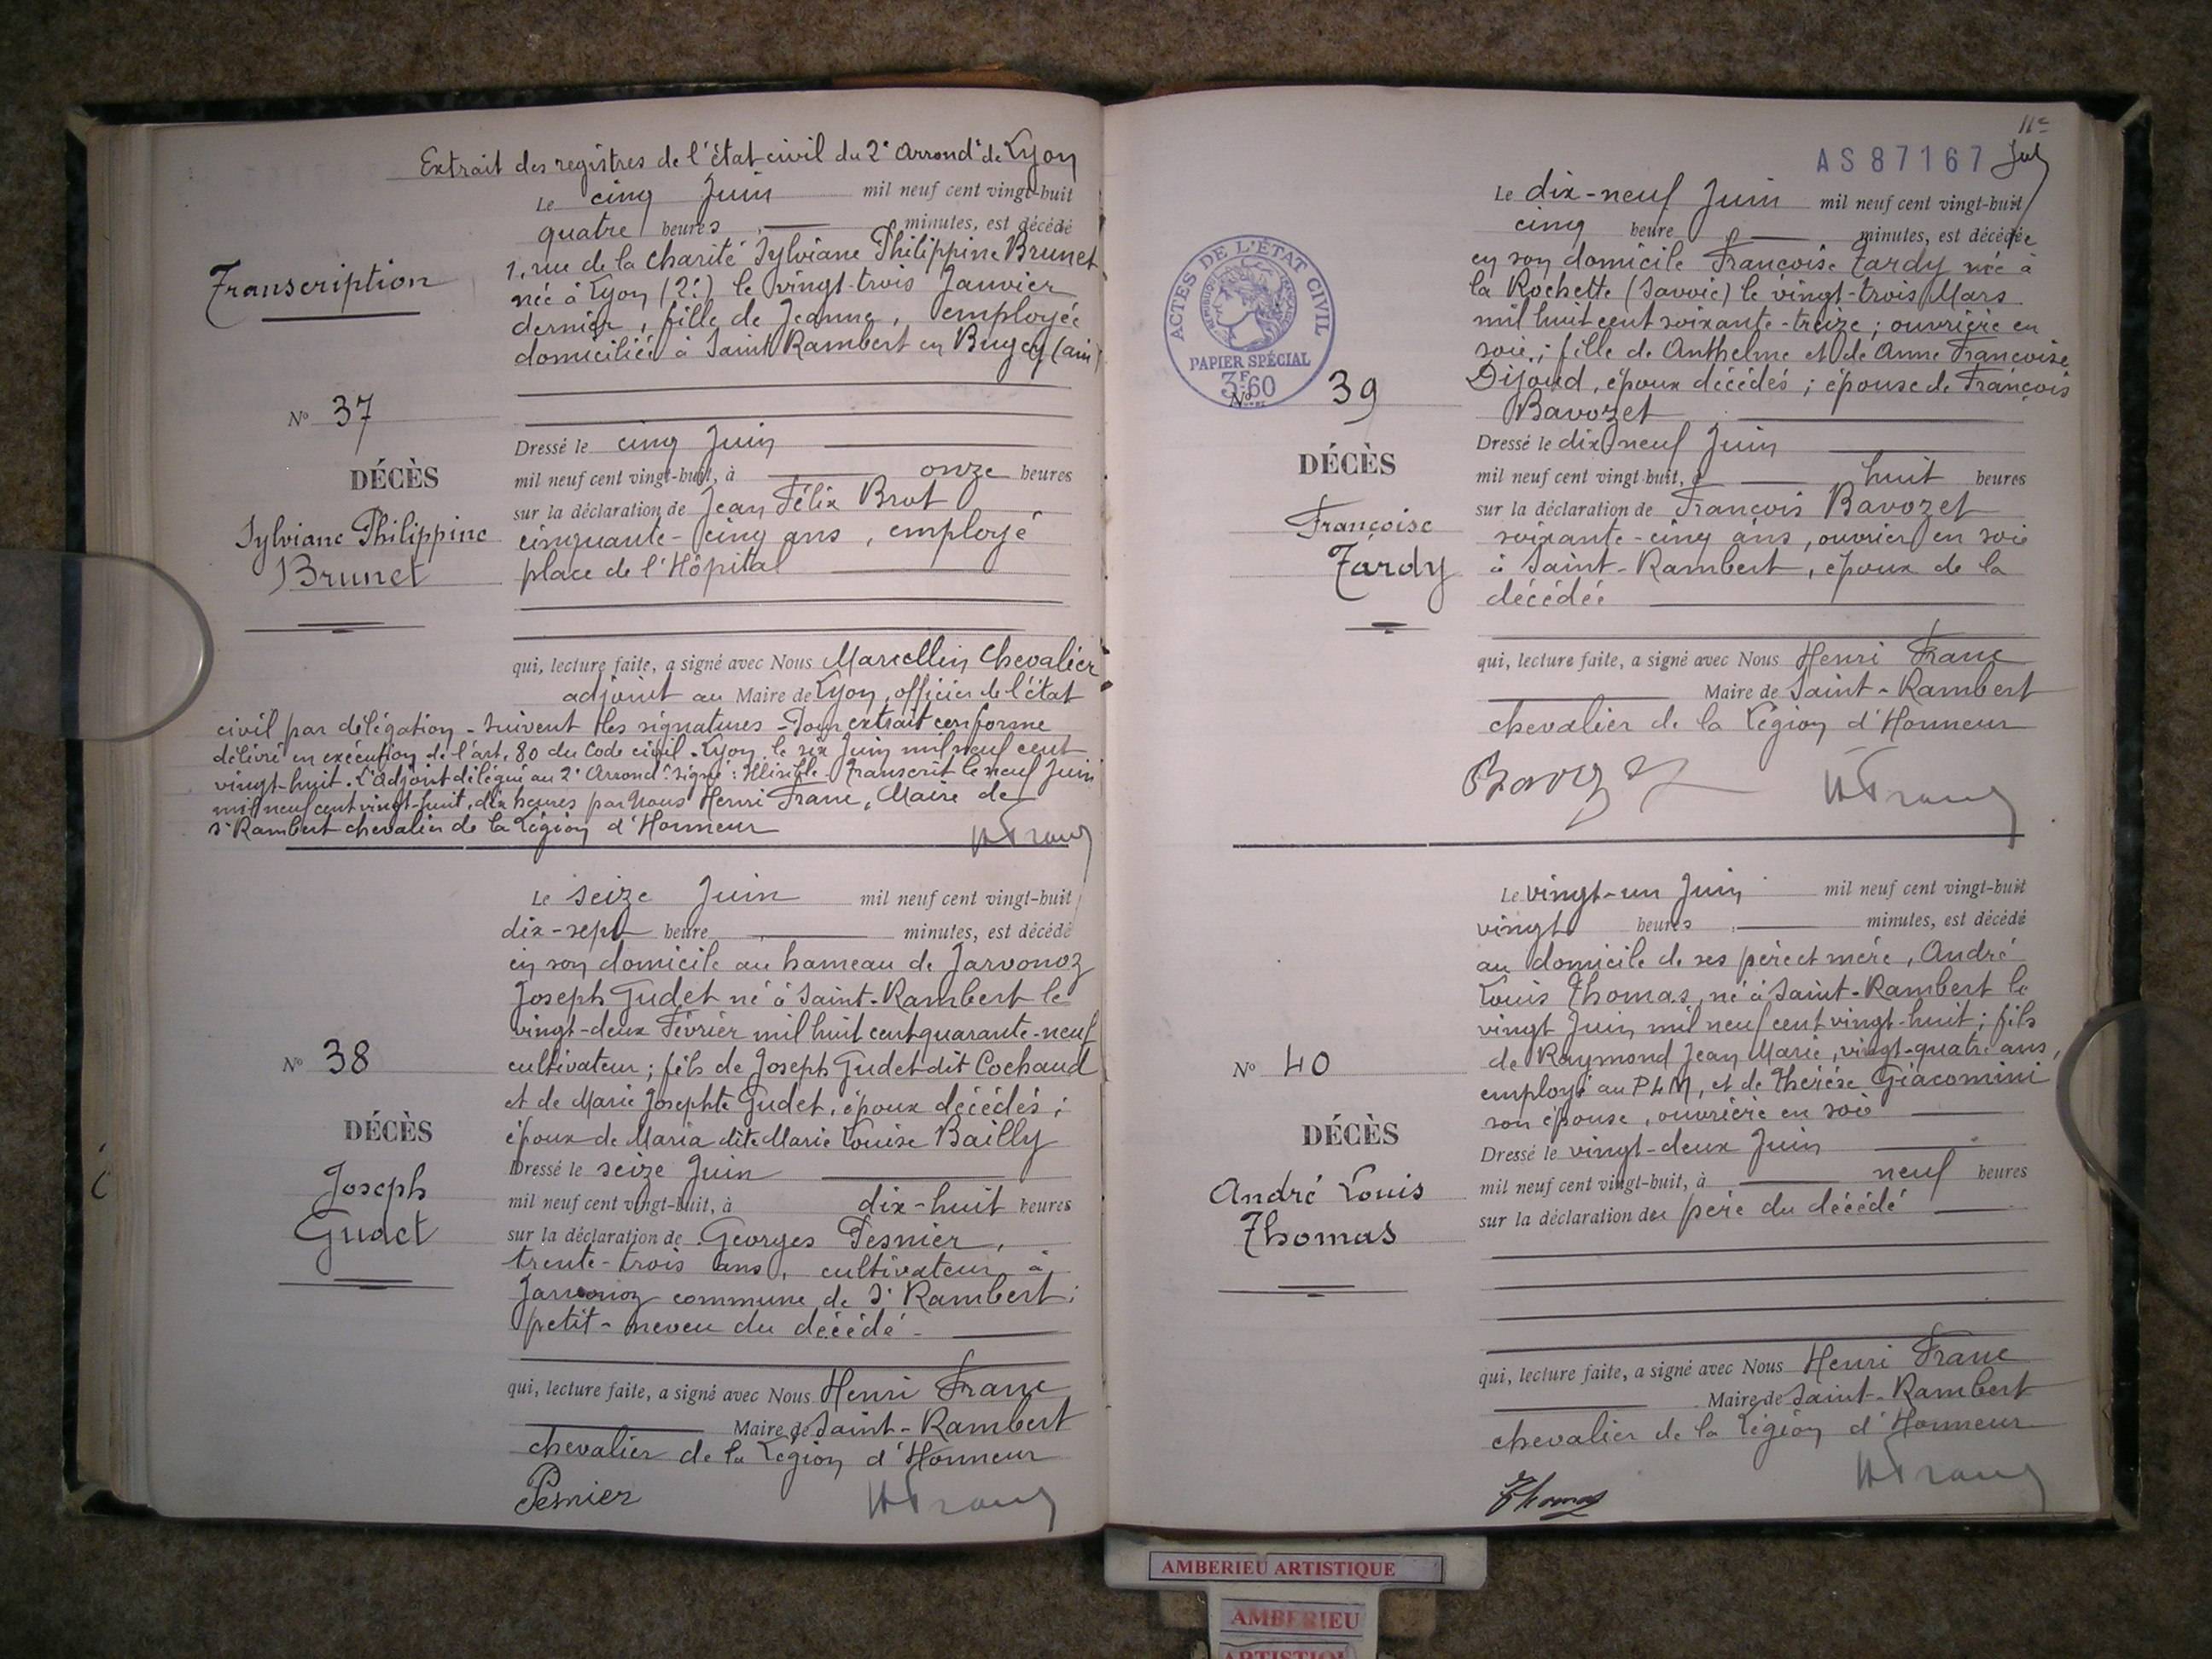 Extrait des registres de l'état-civil du 2e Arrondt de Lyon
Le cinq Juin mil neuf cent vingt-huit
quatre heures minutes, est décédé
1, rue de la Charité Sylviane Philippine Brunet
née à Lyon (2e) le vingt-trois Janvier
dernier, fille de Jeanne, employée
domiciliée à Saint Rambert en Bugey (ain)
Transcription
No 37
DÉCÈS
Sylviane Philippine
Brunet
Dressé le cinq Juin
mil neuf cent vingt-huit, à onze heures
sur la déclaration de Jean Félix Brot
cinquante-cinq ans, employé
place de l'Hôpital
qui, lecture faite, a signé avec Nous Marcellin Chevalier
adjoint au Maire de Lyon, officier de l'état
civil par délégation - Suivent les signatures - Pour extrait conforme
délivré en exécution de l'art. 80 du Code civil. Lyon, le six Juin mil neuf cent
vingt-huit. L'Adjoint délégué au 2e Arrondt signé : Illisible - Transcrit le neuf Juin
mil neuf cent vingt-huit, dix heures par Nous Henri Franc, Maire de
St Rambert chevalier de la Légion d'Honneur
H Franc
Le seize Juin mil neuf cent vingt-huit
dix-sept heure minutes, est décédé
en son domicile au hameau de Javornoz
Joseph Gudet né à Saint-Rambert le
vingt-deux Février mil huit cent quarante-neuf
cultivateur ; fils de Joseph Gudet dit Cochaud
et de Marie Josephte Gudet, époux décédés ;
époux de Maria dite Marie Louise Bailly
No 38
DÉCÈS
Joseph
Gudet
Dressé le seize Juin
mil neuf cent vingt-huit, à dix-huit heures
sur la déclaration de Georges Pesnier,
trente-trois ans, cultivateur à
Javornoz commune de St Rambert ;
petit-neveu du décédé -
qui, lecture faite, a signé avec Nous Henri Franc
Maire de Saint-Rambert
chevalier de la Légion d'Honneur
Pesnier H Franc
11e
AS 87167
ACTES DE L'ÉTAT CIVIL
RÉPUBLIQUE FRANÇAISE
PAPIER SPÉCIAL
3F.60
Le dix-neuf Juin mil neuf cent vingt-huit
cinq heure minutes, est décédée
en son domicile Françoise Tardy née à
la Rochette (Savoie) le vingt-trois Mars
mil huit cent soixante-treize ; ouvrière en
soie ; fille de Anthelme et de Anne Françoise
Dijoud, époux décédés ; épouse de François
Bavozet
No 39
DÉCÈS
Françoise
Tardy
Dressé le dix neuf Juin
mil neuf cent vingt-huit, à huit heures
sur la déclaration de François Bavozet
soixante-cinq ans, ouvrier en soie
à Saint-Rambert, époux de la
décédée
qui, lecture faite, a signé avec Nous Henri Franc
Maire de Saint-Rambert
chevalier de la Légion d'Honneur
Bavozet H Franc
Le vingt-un Juin mil neuf cent vingt-huit
vingt heures minutes, est décédé
au domicile de ses père et mère, André
Louis Thomas, né à Saint-Rambert le
vingt Juin mil neuf cent vingt-huit ; fils
de Raymond Jean Marie, vingt-quatre ans,
employé au PLM, et de Thérèse Giacomini
son épouse, ouvrière en soie
No 40
DÉCÈS
André Louis
Thomas
Dressé le vingt-deux Juin
mil neuf cent vingt-huit, à neuf heures
sur la déclaration du père du décédé
qui, lecture faite, a signé avec Nous Henri Franc
Maire de Saint-Rambert
chevalier de la Légion d'Honneur
Thomas H Franc
AMBERIEU ARTISTIQUE
AMBERIEU
ARTISTIQUE